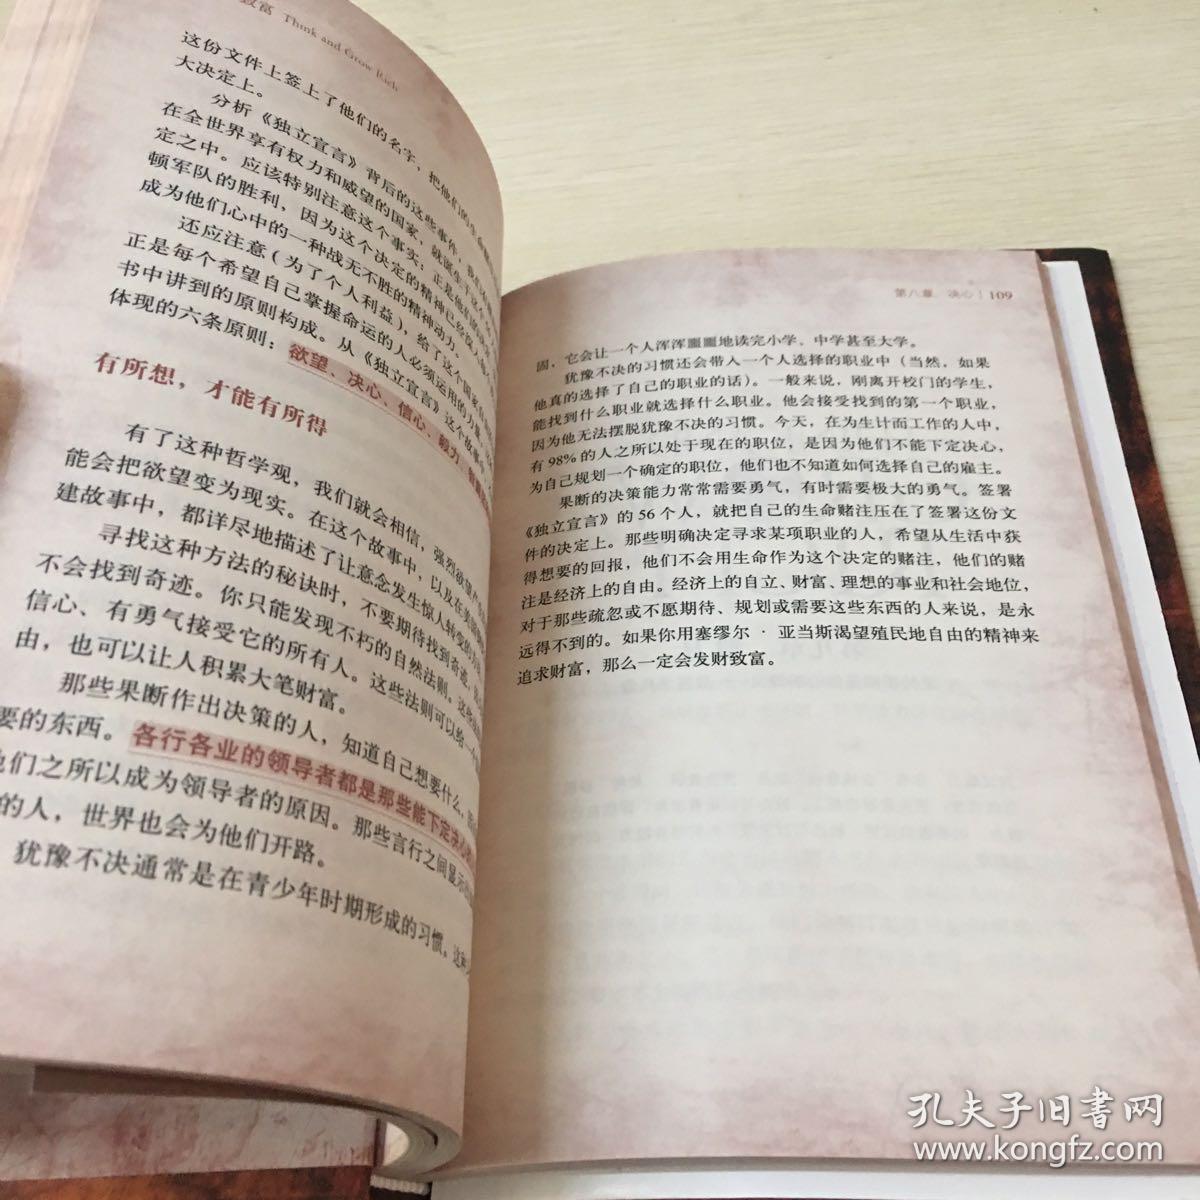 致富 Think and Grow Rich
这份文件上签上了他们的名字，把他们的生命
大决定上。
分析《独立宣言》背后的这些事件，我们
在全世界享有权力和威望的国家，就诞生于这个
定之中。应该特别注意这个事实：正是他们的
顿军队的胜利，因为这个决定的精神已经
成为他们心中的一种战无不胜的精神动力。
还应注意（为了个人利益），给了这个国家自
正是每个希望自己掌握命运的人必须运用的力量，
书中讲到的原则构成。从《独立宣言》这个故事中，
体现的六条原则：欲望、决心、信心、毅力、
有所想，才能有所得
有了这种哲学观，我们就会相信，强烈欲望
能会把欲望变为现实。在这个故事中，以及在美国钢
建故事中，都详尽地描述了让意念发生惊人转变的方
寻找这种方法的秘诀时，不要期待找到奇迹，
不会找到奇迹。你只能发现不朽的自然法则。这些法
信心、有勇气接受它的所有人。这些法则可以给一个
由，也可以让人积累大笔财富。
那些果断作出决策的人，知道自己想要什么，
要的东西。各行各业的领导者都是那些能下定决心
他们之所以成为领导者的原因。那些言行之间显示
的人，世界也会为他们开路。
犹豫不决通常是在青少年时期形成的习惯。这种
第八章 决心 | 109
固，它会让一个人浑浑噩噩地读完小学、中学甚至大学。
犹豫不决的习惯还会带入一个人选择的职业中（当然，如果
他真的选择了自己的职业的话）。一般来说，刚离开校门的学生，
能找到什么职业就选择什么职业。他会接受找到的第一个职业，
因为他无法摆脱犹豫不决的习惯。今天，在为生计而工作的人中，
有98%的人之所以处于现在的职位，是因为他们不能下定决心，
为自己规划一个确定的职位，他们也不知道如何选择自己的雇主。
果断的决策能力常常需要勇气，有时需要极大的勇气。签署
《独立宣言》的56个人，就把自己的生命赌注压在了签署这份文
件的决定上。那些明确决定寻求某项职业的人，希望从生活中获
得想要的回报，他们不会用生命作为这个决定的赌注，他们的赌
注是经济上的自由。经济上的自立、财富、理想的事业和社会地位，
对于那些疏忽或不愿期待、规划或需要这些东西的人来说，是永
远得不到的。如果你用塞缪尔·亚当斯渴望殖民地自由的精神来
追求财富，那么一定会发财致富。
孔夫子旧书网
www.kongfz.com